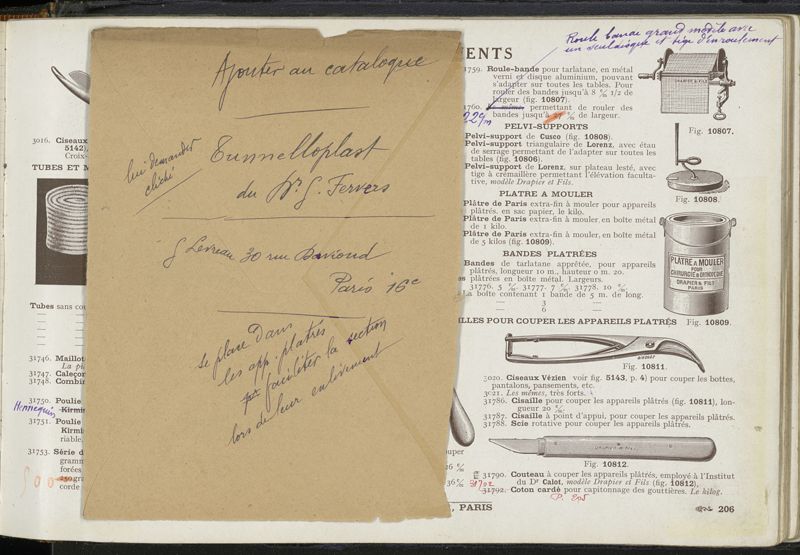 Ajouter au catalogue
lui demander
cliché
Tunnelloplast
du Dr G. Fervers
G Levreau 30 rue Davioud
Paris 16e
se place dans
les app. platrés
pr faciliter la section
lors de leur enlèvement
3016. Ciseaux
5142),
Croix-
TUBES ET M
Tubes sans cou
31746. Maillot
La pi
31747. Caleçon
31748. Combin
31750. Poulie
Hennequin
Kirmis
31751. Poulie
Kirmis
riable.
31753. Série d
gramm
forées
500
corde
Roule bande grand modèle avec
un seul disque et tige d'enroulement
ENTS
1759. Roule-bande pour tarlatane, en métal
verni et disque aluminium, pouvant
s'adapter sur toutes les tables. Pour
rouler des bandes jusqu'à 8 c/m 1/2 de
largeur (fig. 10807).
1760. Le même, permettant de rouler des
22 c/m bandes jusqu'à c/m de largeur.
DRAPIER & FILS
Fig. 10807.
PELVI-SUPPORTS
Pelvi-support de Cusco (fig. 10808).
Pelvi-support triangulaire de Lorenz, avec étau
de serrage permettant de l'adapter sur toutes les
tables (fig. 10806).
Pelvi-support de Lorenz, sur plateau lesté, avec
tige à crémaillère permettant l'élévation faculta-
tive, modèle Drapier et Fils.
Fig. 10808.
PLATRE A MOULER
Plâtre de Paris extra-fin à mouler pour appareils
plâtrés, en sac papier, le kilo.
Plâtre de Paris extra-fin à mouler, en boîte métal
de 1 kilo.
Plâtre de Paris extra-fin à mouler, en boîte métal
de 5 kilos (fig. 10809).
PLATRE A MOULER
POUR
CHIRURGIE & ORTHOPEDIE
DRAPIER & FILS
PARIS
Fig. 10809.
BANDES PLATRÉES
Bandes de tarlatane apprêtée, pour appareils
plâtrés, longueur 10 m., hauteur 0 m. 20.
s plâtrées en boîte métal. Largeurs.
31776. 5 c/m 31777. 7 c/m 31778. 10 c/m
La boîte contenant 1 bande de 5 m. de long.
— 3 —
— 6 —
ILLES POUR COUPER LES APPAREILS PLATRÉS
Fig. 10811.
3020. Ciseaux Vézien voir fig. 5143, p. 4) pour couper les bottes,
pantalons, pansements, etc.
3021. Les mêmes, très forts.
31786. Cisaille pour couper les appareils plâtrés (fig. 10811), lon-
gueur 20 c/m.
31787. Cisaille à point d'appui, pour couper les appareils plâtrés.
31788. Scie rotative pour couper les appareils plâtrés.
DRAPIER & FILS
Fig. 10812.
ouper
26 c/m
36 c/m
31790. Couteau à couper les appareils plâtrés, employé à l'Institut
du Dr Calot, modèle Drapier et Fils (fig. 10812),
31792. Coton cardé pour capitonnage des gouttières. Le kilog.
31702
, PARIS
206